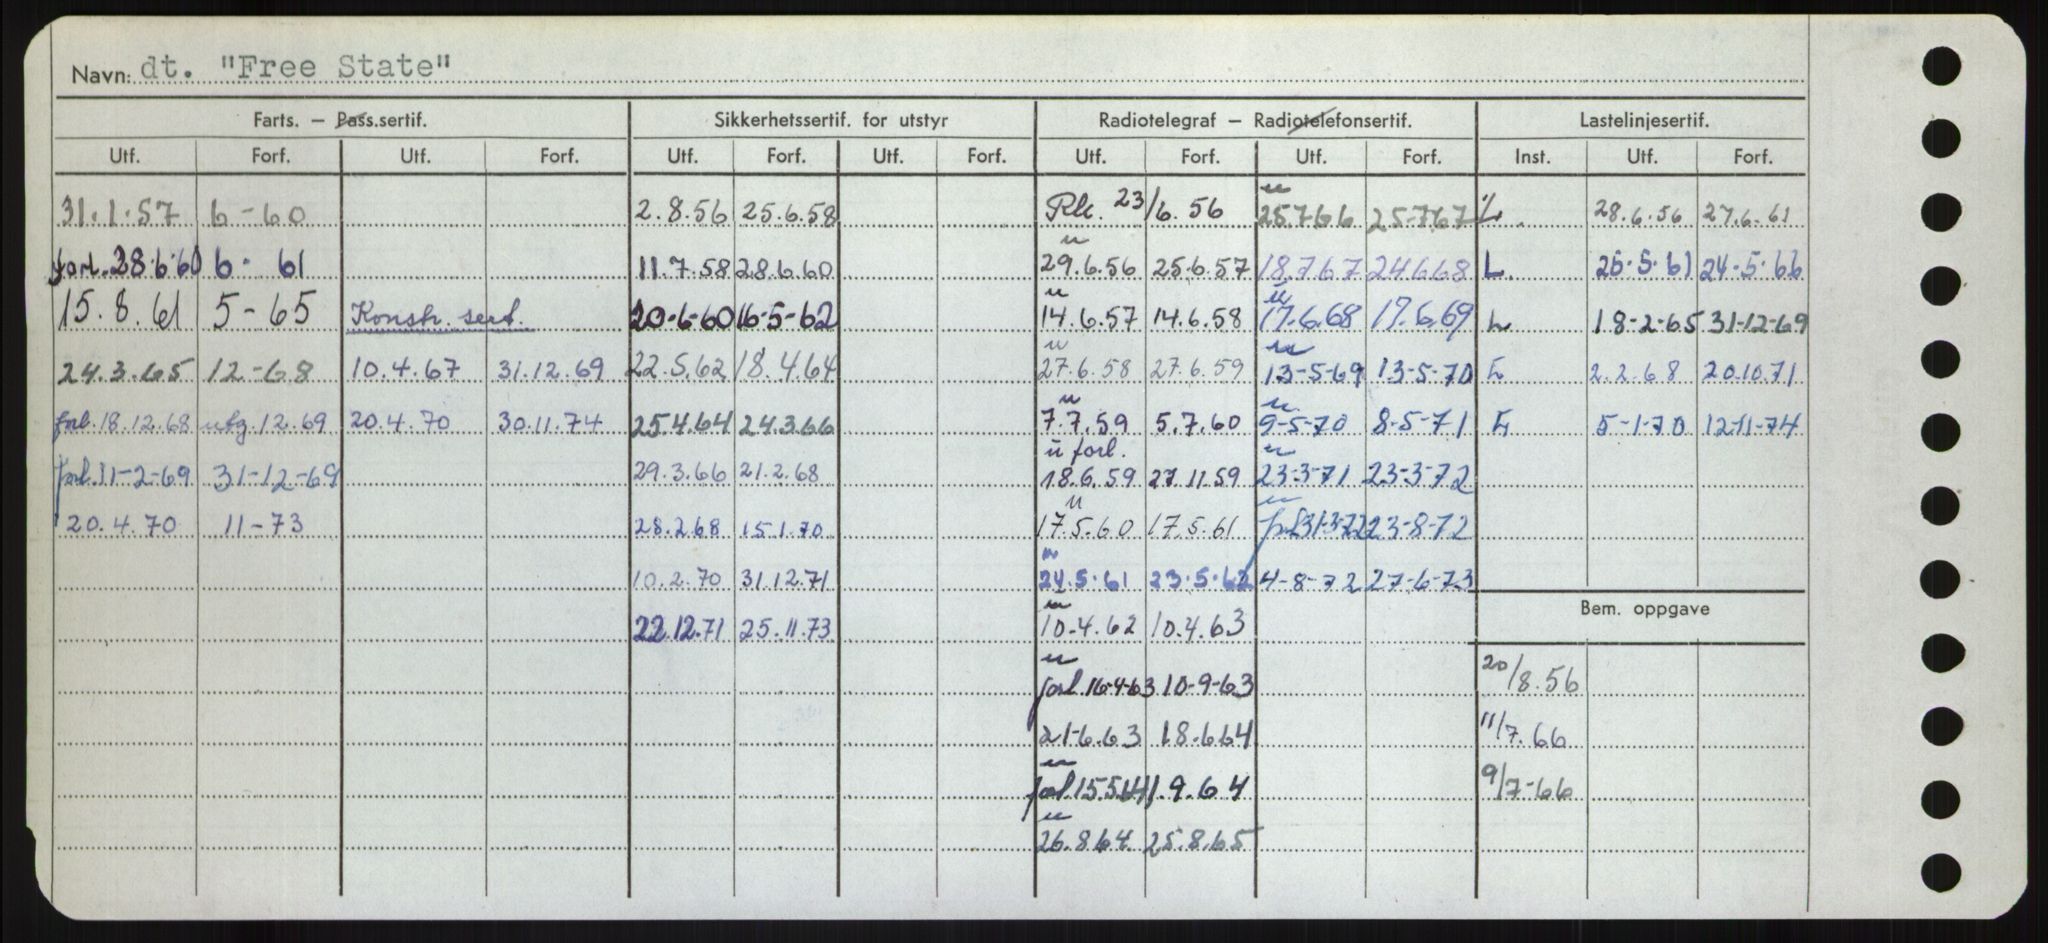 Navn: dt. "Free State"
Farts. — Pass.sertif. Sikkerhetssertif. for utstyr Radiotelegraf — Radiotelefonsertif. Lastelinjesertif.
Utf. Forf. Utf. Forf. Utf. Forf. Utf. Forf. Utf. Forf. Utf. Forf. Inst. Utf. Forf.
31.1.57 6-60 2.8.56 25.6.58 23/6.56 u 25.7.66 25.7.67 L. 28.6.56 27.6.61
forl. 28.6.60 6. 61 11.7.58 28.6.60 u 29.6.56 25.6.57 18.7.67 24.6.68 L. 25.5.61 24.5.66
15.8.61 5-65 Konstr. sert. 20-6-60 16-5-62 u 14.6.57 14.6.58 u 17.6.68 17.6.69 L 18-2-65 31-12-69
24.3.65 12-68 10.4.67 31.12.69 22.5.62 18.4.64 u 27.6.58 27.6.59 u 13-5-69 13-5-70 L 2.2.68 20.10.71
forl. 18.12.68 utg. 12.69 20.4.70 30.11.74 25.4.64 24.3.66 u 7.7.59 5.7.60 u 9-5-70 8-5-71 L 5-1-70 12-11-74
forl. 11-2-69 31-12-69 29.3.66 21.2.68 u forl. 18.6.59 27.11.59 u 23-3-71 23-3-72
20.4.70 11-73 28.2.68 15.1.70 u 17.5.60 17.5.61 u forl. 31-3-72 23-8-72
10.2.70 31.12.71 u 24.5.61 23.5.62 4-8-72 27-6-73
Bem. oppgave
22.12.71 25.11.73 u 10.4.62 10.4.63
u forl. 16-4-63 10-9-63 20/8.56
21-6.63 18.6.64 11/7.66
u forl. 15.5.64 1.9.64 9/7-66
u 26.8.64 25.8.65